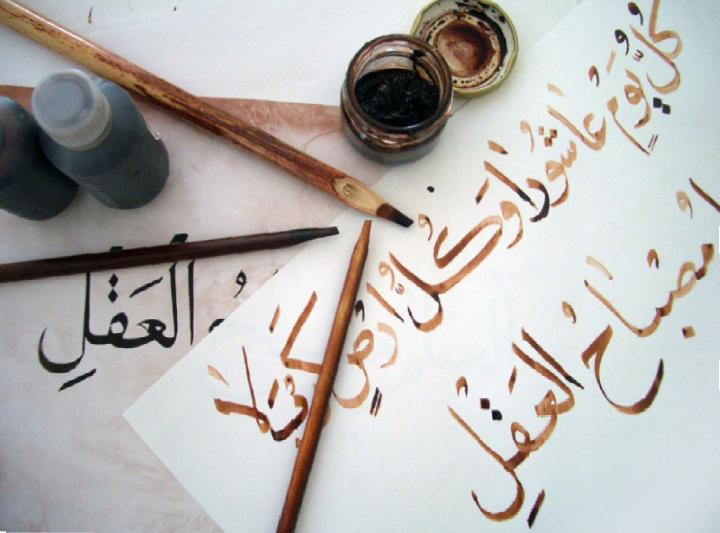 كُلُّ يَومٍ عَاشُورَا وَكُلُّ اَرْضٍ كَربَلَا
مِصْبَاحُ العَقلِ
العَقلِ